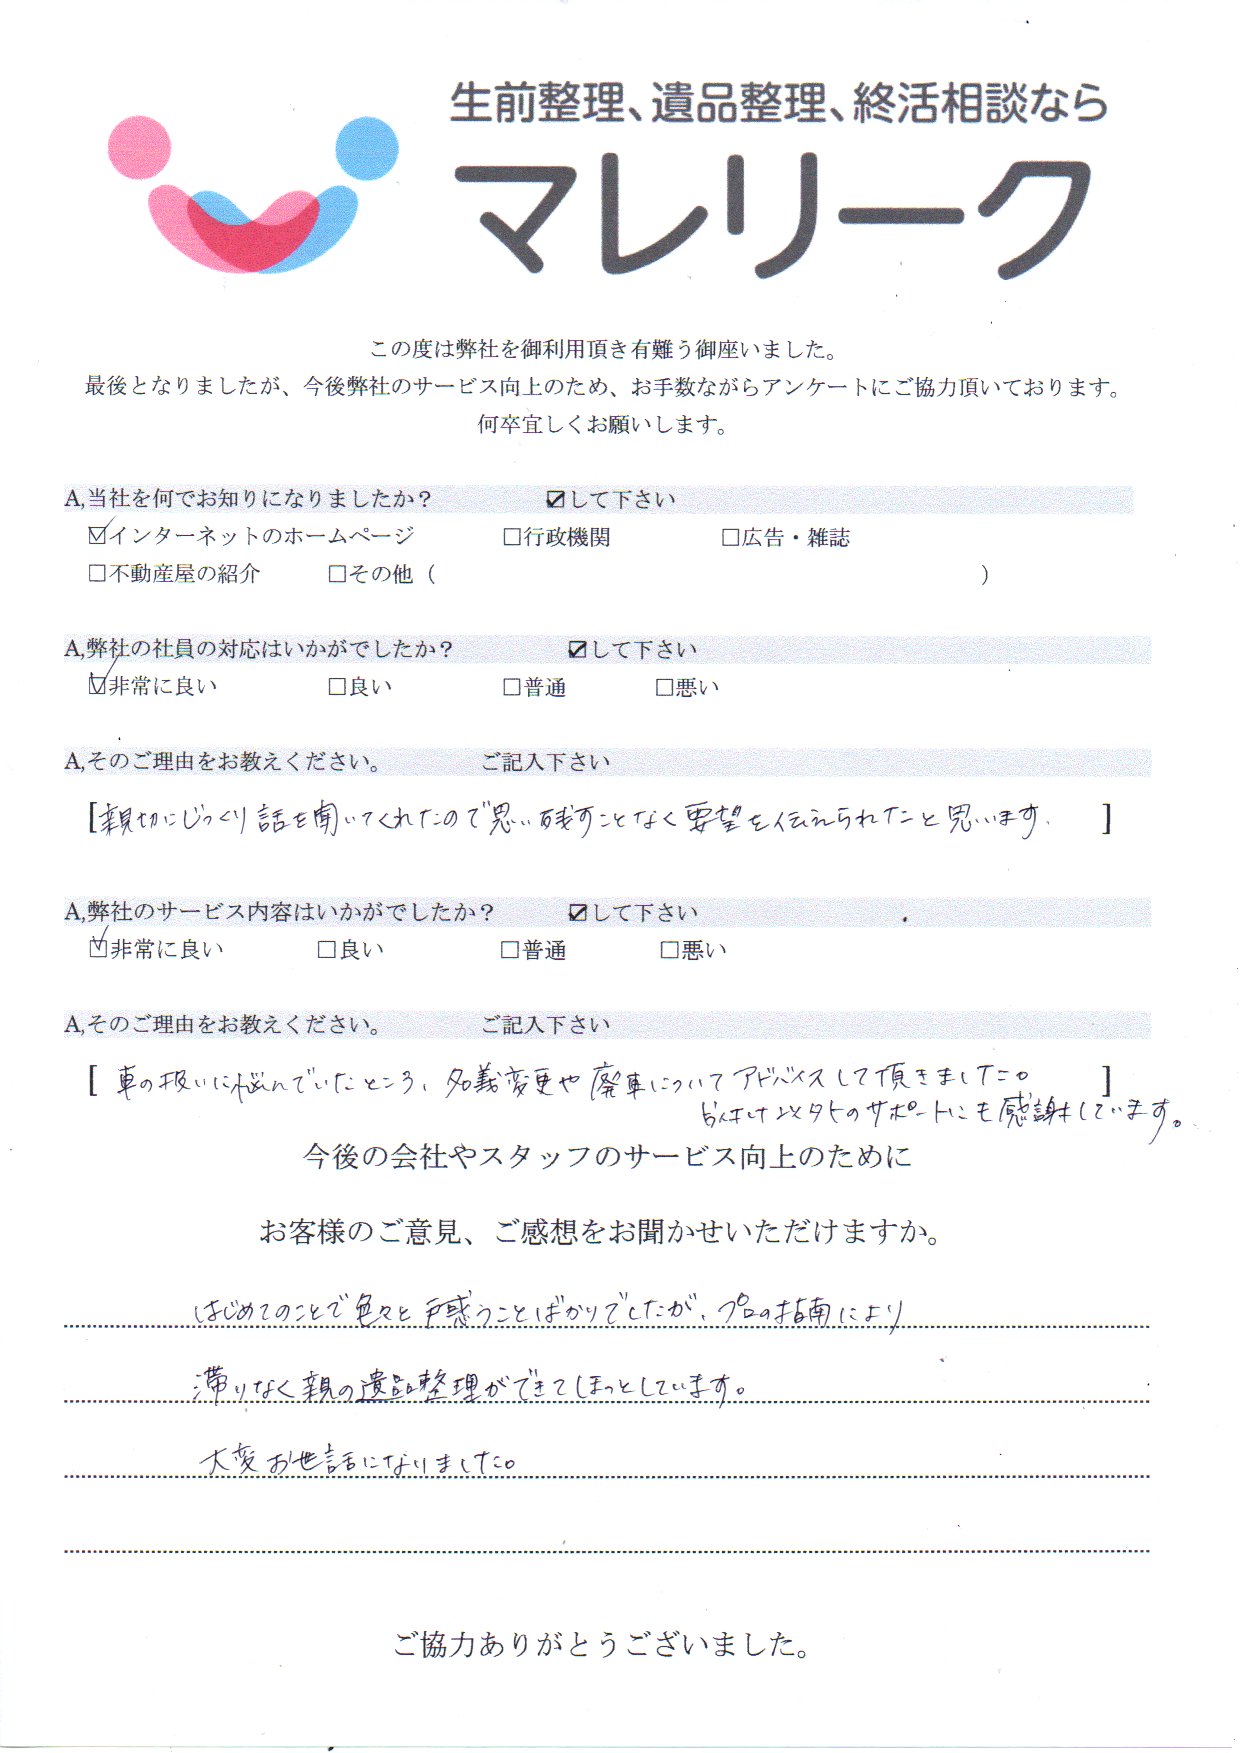 生前整理、遺品整理、終活相談なら
マレリーク
この度は弊社を御利用頂き有難う御座いました。
最後となりましたが、今後弊社のサービス向上のため、お手数ながらアンケートにご協力頂いております。
何卒宜しくお願いします。
A,当社を何でお知りになりましたか？ ☑して下さい
☑インターネットのホームページ □行政機関 □広告・雑誌
□不動産屋の紹介 □その他（ ）
A,弊社の社員の対応はいかがでしたか？ ☑して下さい
☑非常に良い □良い □普通 □悪い
A,そのご理由をお教えください。 ご記入下さい
[親切にじっくり話を聞いてくれたので思い残すことなく要望を伝えられたと思います. ]
A,弊社のサービス内容はいかがでしたか？ ☑して下さい
☑非常に良い □良い □普通 □悪い
A,そのご理由をお教えください。 ご記入下さい
[ 車の扱いに悩んでいたところ、名義変更や廃車についてアドバイスして頂きました。 ]
片付け以外のサポートにも感謝しています。
今後の会社やスタッフのサービス向上のために
お客様のご意見、ご感想をお聞かせいただけますか。
はじめてのことで色々と戸惑うことばかりでしたが、プロの指南により
滞りなく親の遺品整理ができてほっとしています。
大変お世話になりました。
ご協力ありがとうございました。